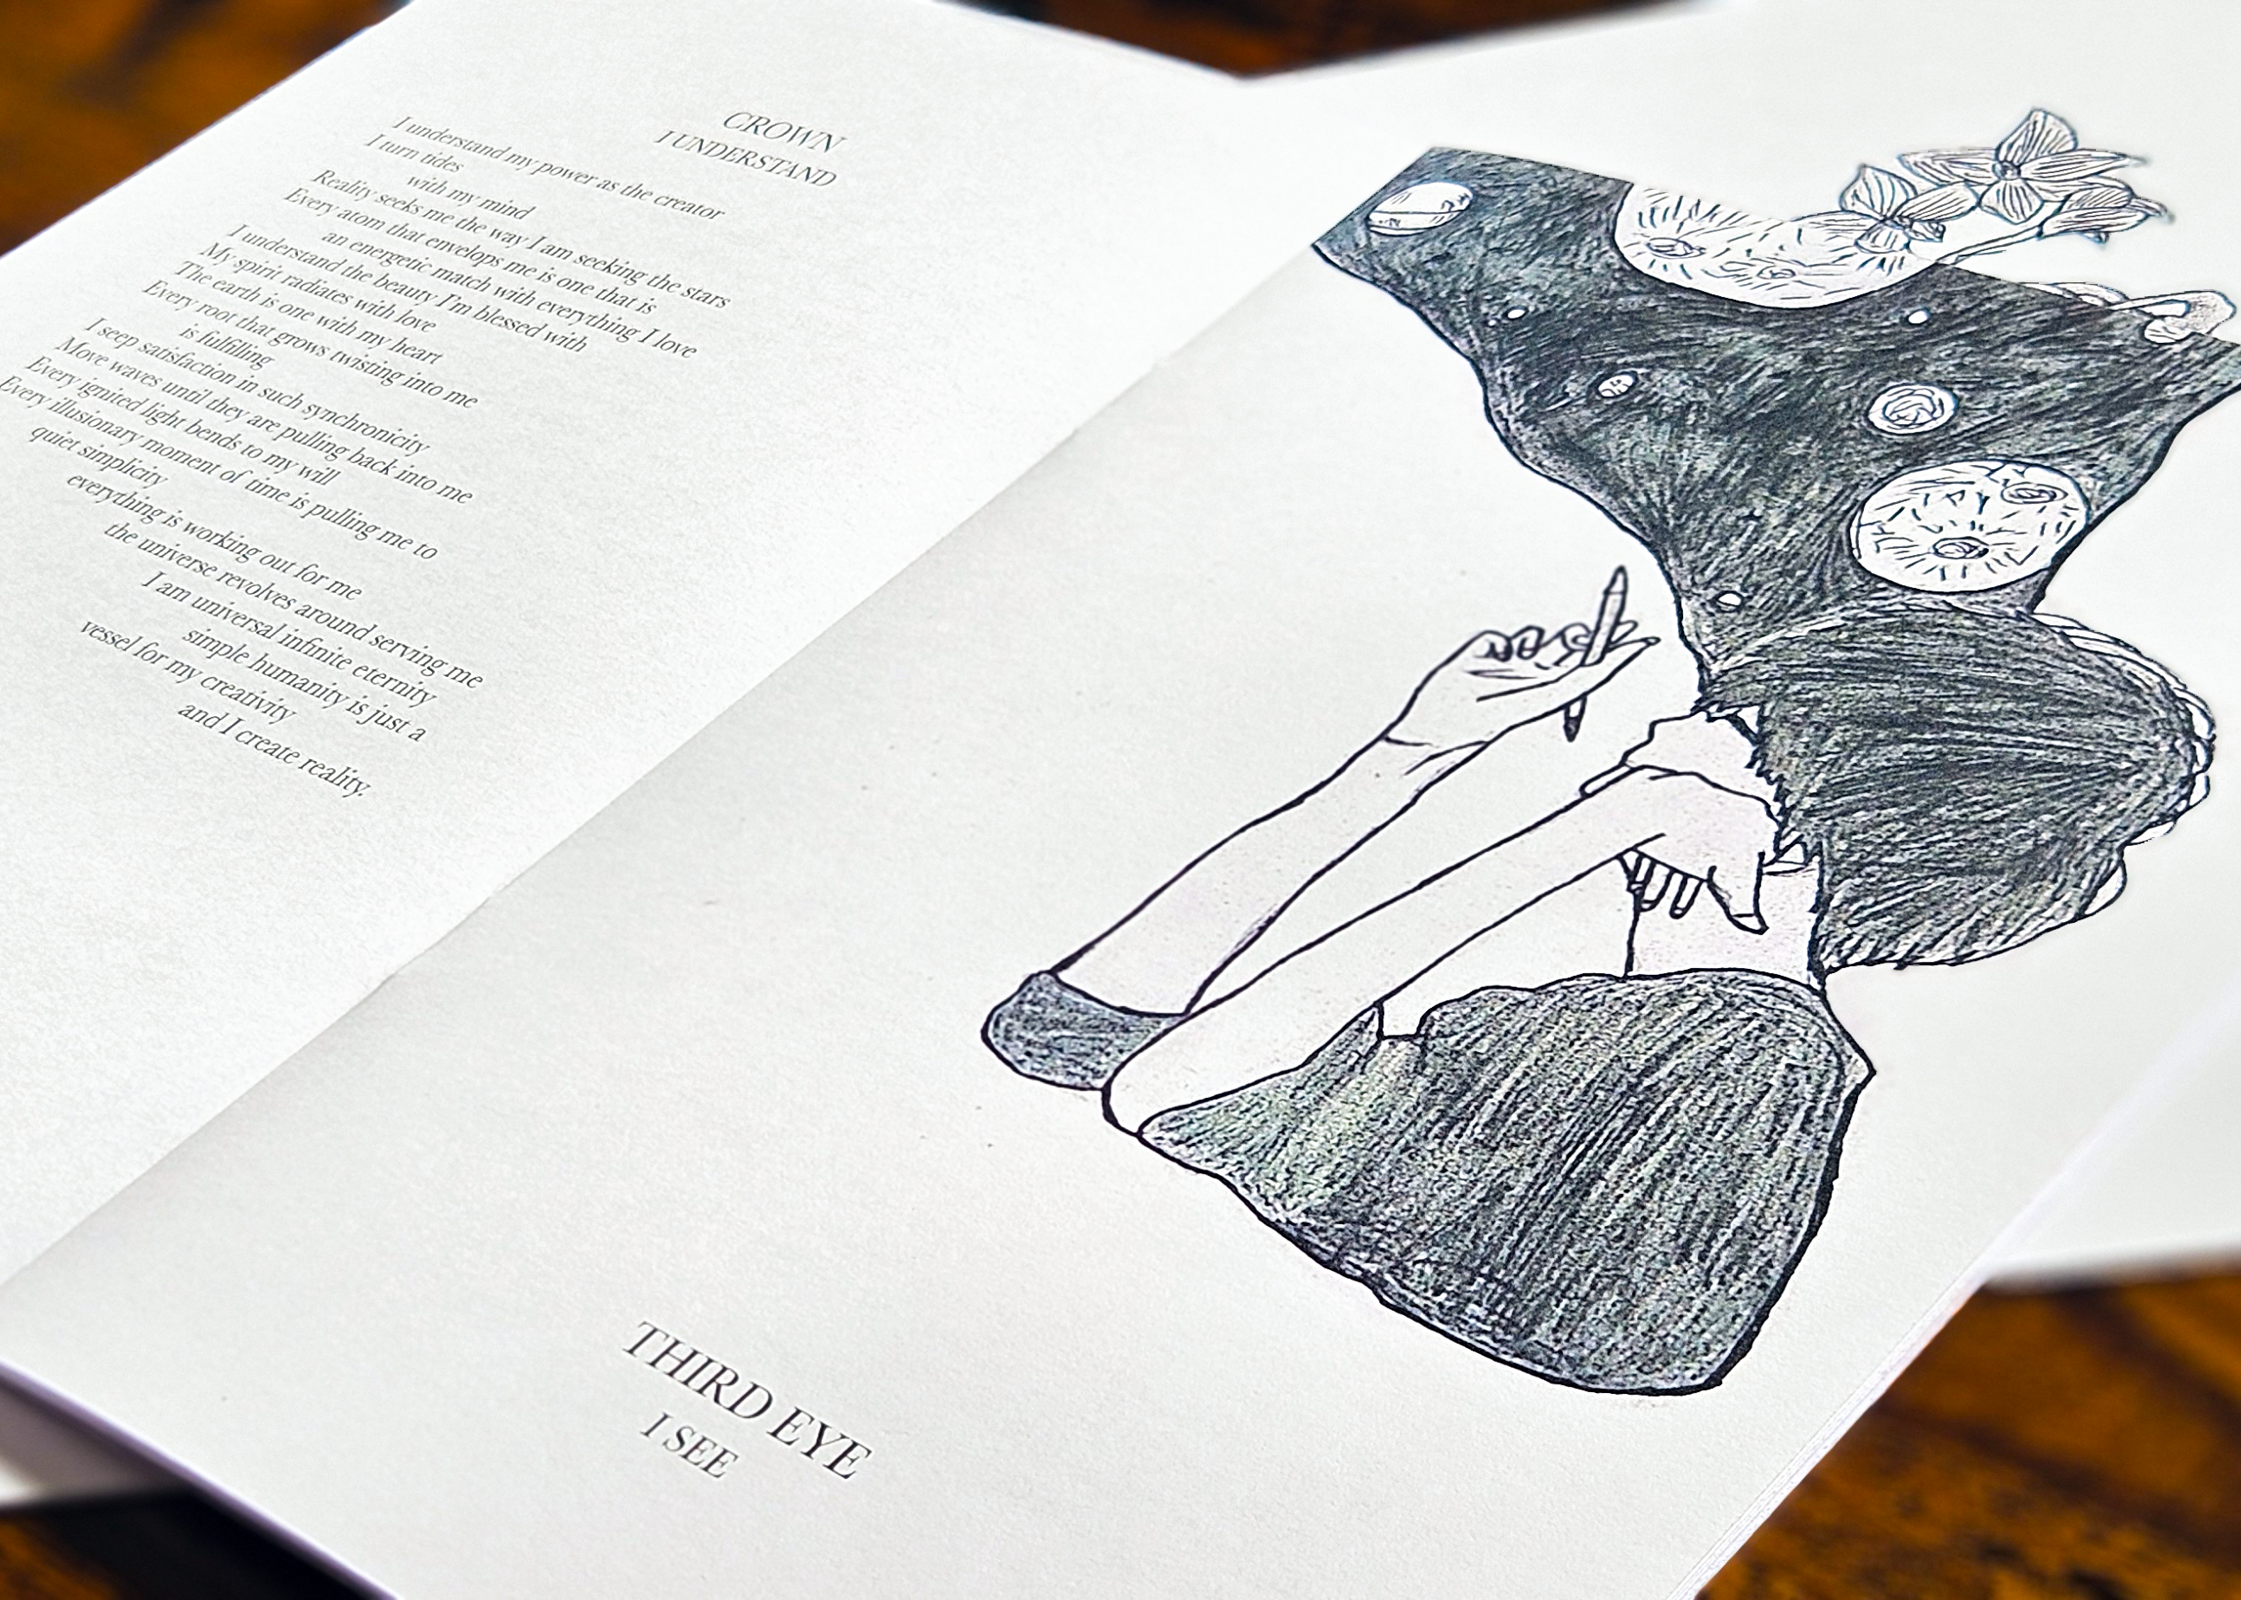 CROWN
I UNDERSTAND
I understand my power as the creator
I turn tides
with my mind
Reality seeks me the way I am seeking the stars
Every atom that envelops me is one that is
an energetic match with everything I love
I understand the beauty I'm blessed with
My spirit radiates with love
The earth is one with my heart
Every root that grows twisting into me
is fulfilling
I seep satisfaction in such synchronicity
Move waves until they are pulling back into me
Every ignited light bends to my will
Every illusionary moment of time is pulling me to
quiet simplicity
everything is working out for me
the universe revolves around serving me
I am universal infinite eternity
simple humanity is just a
vessel for my creativity
and I create reality.
THIRD EYE
I SEE